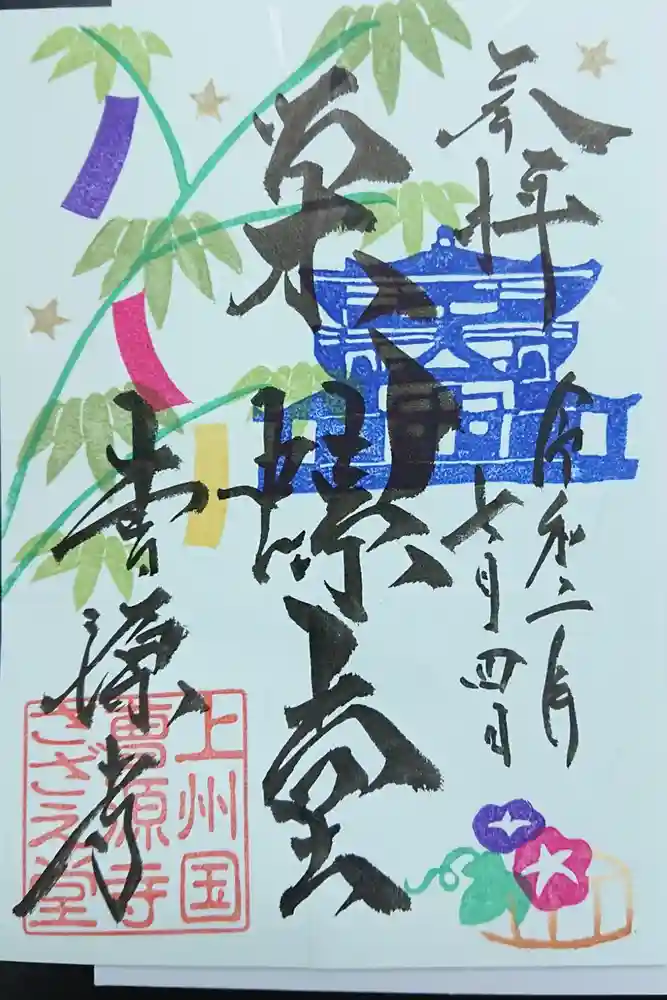 奉拝
令和二年
七月四日
栄螺堂
曹源寺
上州国
曹源寺
さざえ堂